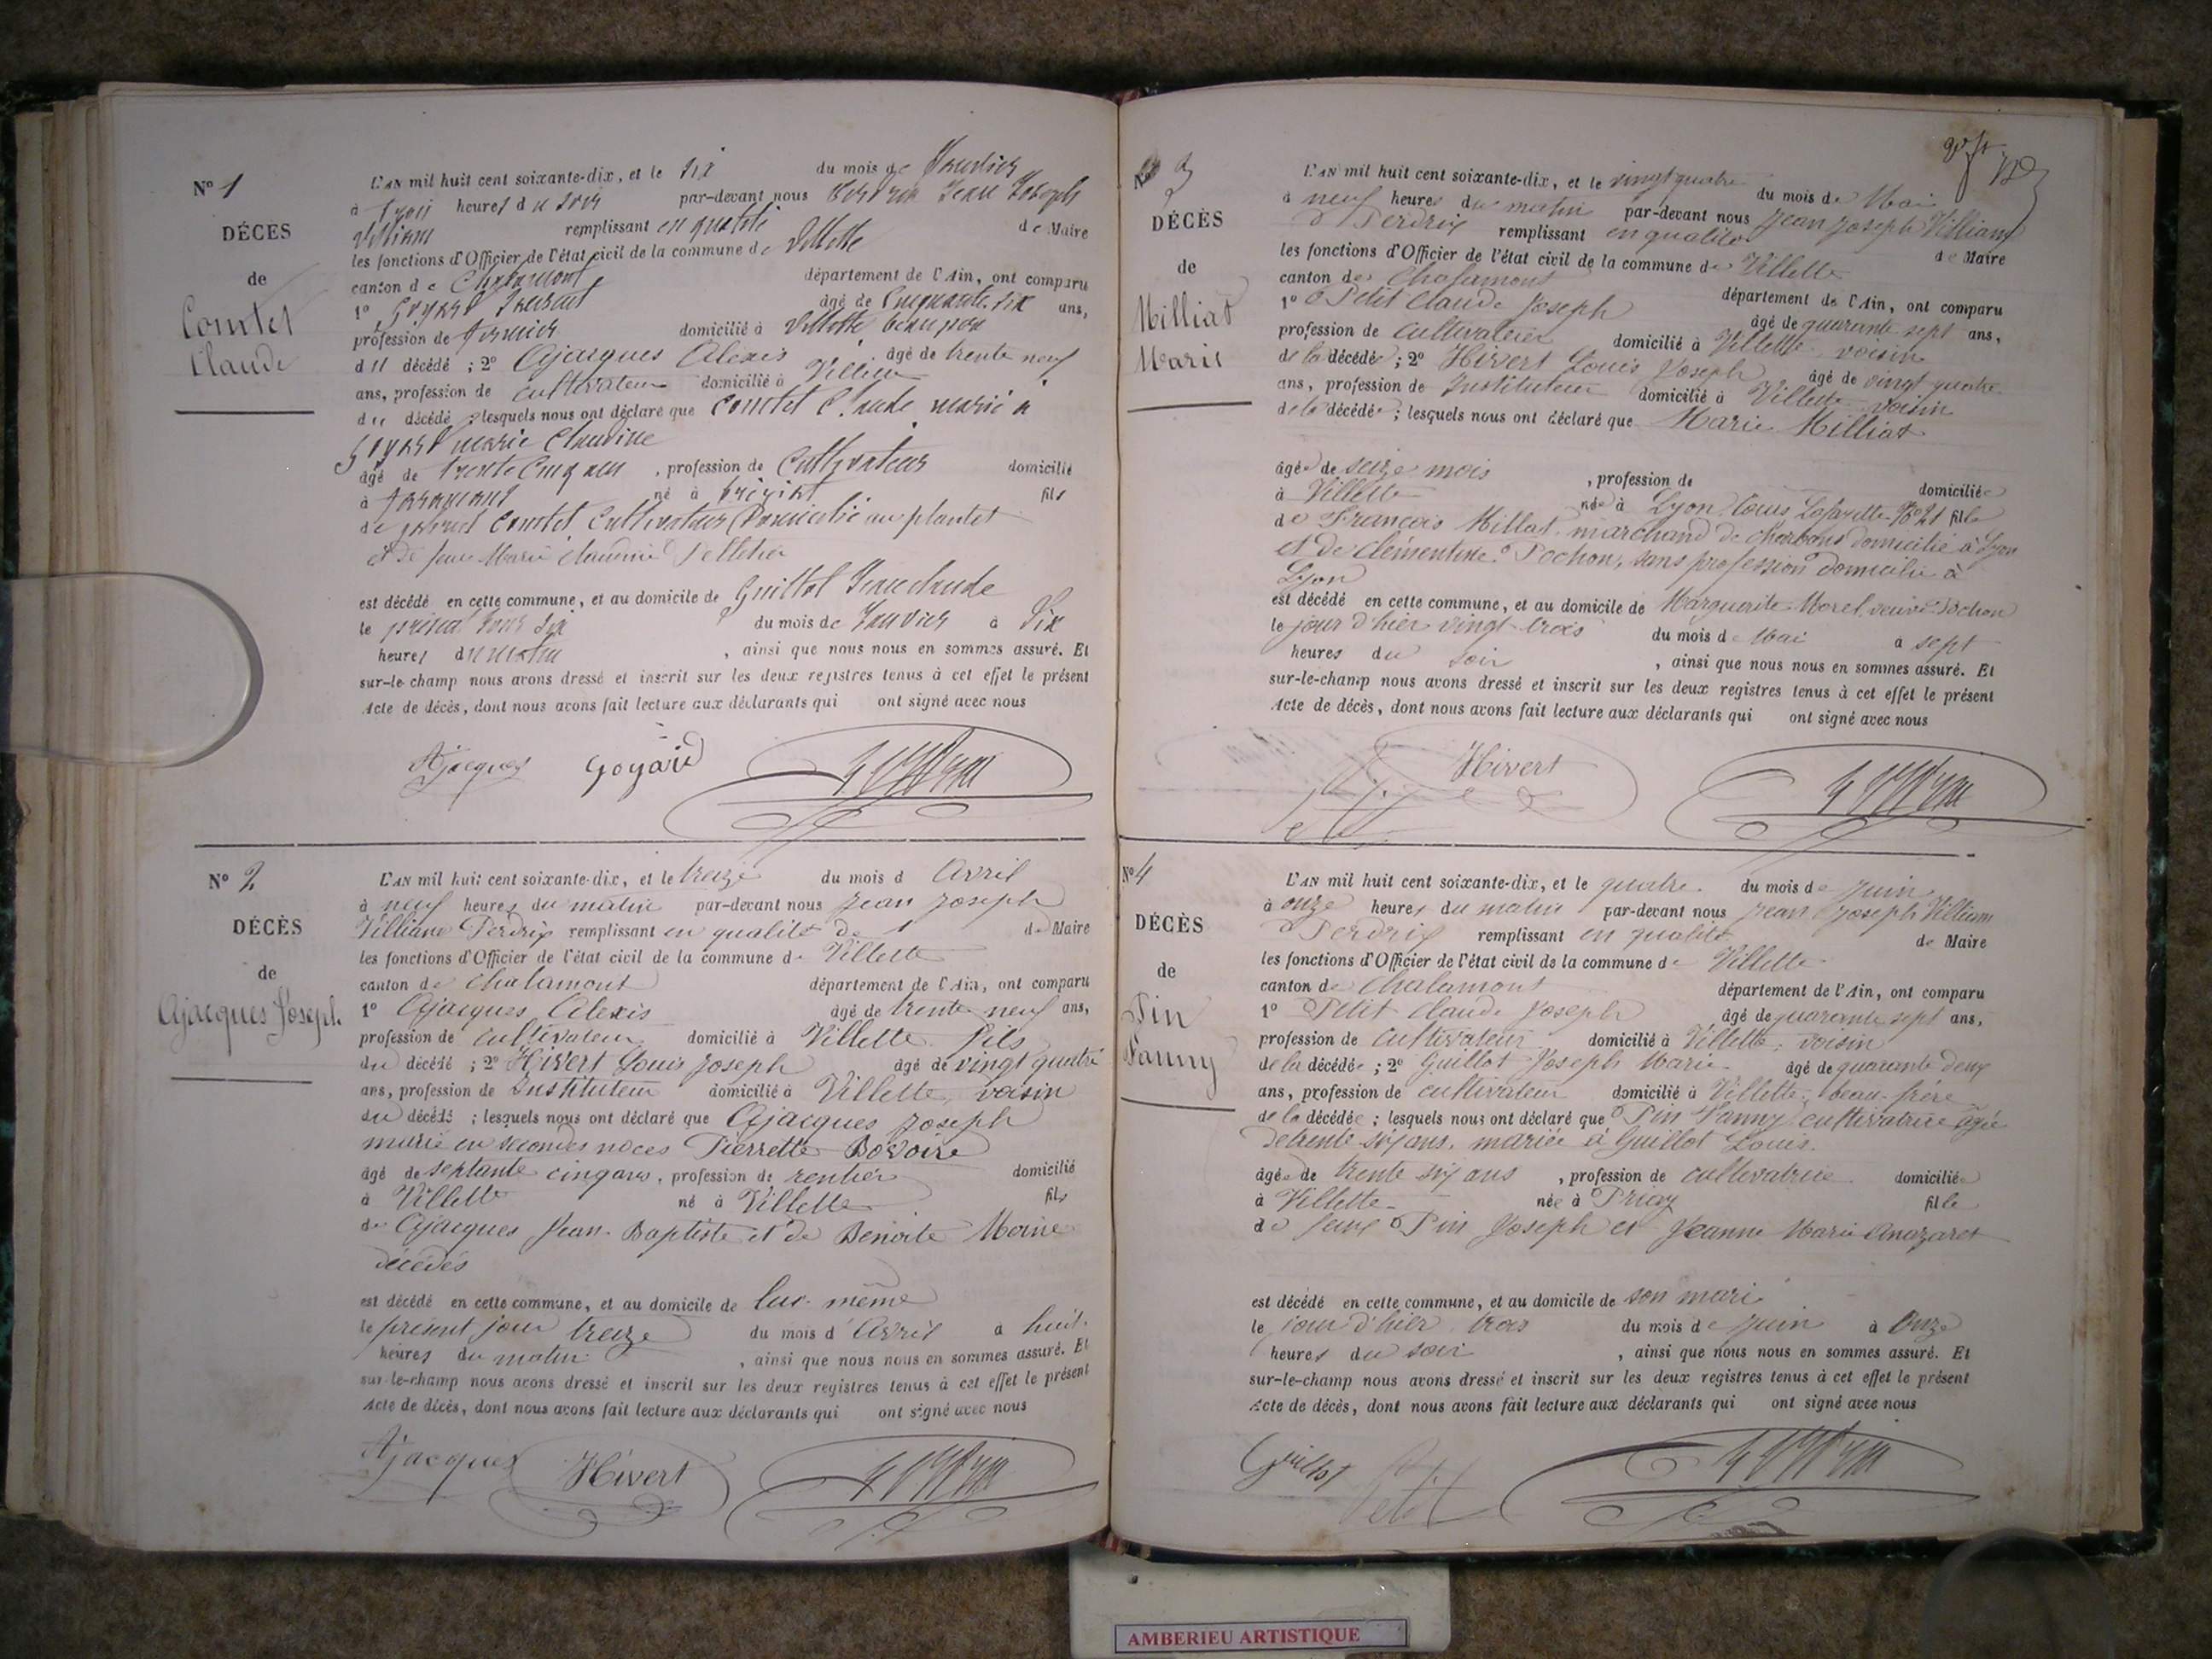 N° 1
DÉCÈS
de
Comtet
Claude
L'AN mil huit cent soixante-dix, et le six du mois de Janvier
à trois heures du soir par-devant nous Perdrix Jean Joseph
Villiam remplissant en qualité de Maire
les fonctions d'Officier de l'état civil de la commune de Villette
canton de Chalamont département de l'Ain, ont comparu
1° Goyard âgé de Cinquante six ans,
profession de fermier domicilié à Villette beau père
du décédé ; 2° Ajacques Alexis âgé de trente neuf
ans, profession de cultivateur domicilié à
du décédé ; lesquels nous ont déclaré que Comtet Claude marié à
Goyard marie Claudine
âgé de trente Cinq ans , profession de Cultivateur domicilié
à né à fils
de Comtet Cultivateur Domicilié au plantet
et de Marie Claudine Pelletier
est décédé en cette commune, et au domicile de Guillot Jean claude
le présent jour six du mois de Janvier à Six
heures du matin , ainsi que nous nous en sommes assuré. Et
sur-le-champ nous avons dressé et inscrit sur les deux registres tenus à cet effet le présent
Acte de décès, dont nous avons fait lecture aux déclarants qui ont signé avec nous
Ajacques Goyard
N° 2
DÉCÈS
de
Ajacques Joseph
L'AN mil huit cent soixante-dix, et le treize du mois d Avril
à neuf heures du matin par-devant nous Jean Joseph
Villiam Perdrix remplissant en qualité de Maire
les fonctions d'Officier de l'état civil de la commune de Villette
canton de Chalamont département de l'Ain, ont comparu
1° Ajacques Alexis âgé de trente neuf ans,
profession de cultivateur domicilié à Villette Fils
du décédé ; 2° Hivert Louis Joseph âgé de vingt quatre
ans, profession de Instituteur domicilié à Villette, voisin
du décédé ; lesquels nous ont déclaré que Ajacques Joseph
marié en secondes noces Pierrette
âgé de septante cinq ans, profession de rentier domicilié
à Villette né à Villette fils
de Ajacques Jean-Baptiste et de Benoite
décédés
est décédé en cette commune, et au domicile de lui-même
le présent jour treize du mois d'Avril à huit
heures du matin , ainsi que nous nous en sommes assuré. Et
sur-le-champ nous avons dressé et inscrit sur les deux registres tenus à cet effet le présent
Acte de décès, dont nous avons fait lecture aux déclarants qui ont signé avec nous
Ajacques Hivert
N° 3
DÉCÈS
de
Milliat
Marie
L'AN mil huit cent soixante-dix, et le vingt quatre du mois de Mai
à neuf heures du matin par-devant nous Jean Joseph Villiam
Perdrix remplissant en qualité de Maire
les fonctions d'Officier de l'état civil de la commune de Villette
canton de Chalamont département de l'Ain, ont comparu
1° Petit Claude Joseph âgé de quarante sept ans,
profession de cultivateur domicilié à Villette voisin
de la décédée ; 2° Hivert Louis Joseph âgé de vingt quatre
ans, profession de Instituteur domicilié à Villette voisin
de la décédée ; lesquels nous ont déclaré que Marie Milliat
âgée de seize mois , profession de domiciliée
à Villette née à Lyon Cours Lafayette N° 21 fille
de François Millat marchand de charbons domicilié à Lyon
et de Clémentine Pochon, sans profession domiciliée à
Lyon
est décédé en cette commune, et au domicile de Marguerite Morel veuve Pochon
le jour d'hier vingt trois du mois de Mai à sept
heures du soir , ainsi que nous nous en sommes assuré. Et
sur-le-champ nous avons dressé et inscrit sur les deux registres tenus à cet effet le présent
Acte de décès, dont nous avons fait lecture aux déclarants qui ont signé avec nous
Hivert
N° 4
DÉCÈS
de
Pin
Fanny
L'AN mil huit cent soixante-dix, et le quatre du mois de Juin
à onze heures du matin par-devant nous Jean Joseph Villiam
Perdrix remplissant en qualité de Maire
les fonctions d'Officier de l'état civil de la commune de Villette
canton de Chalamont département de l'Ain, ont comparu
1° Petit Claude Joseph âgé de quarante sept ans,
profession de cultivateur domicilié à Villette, voisin
de la décédée ; 2° Guillot Joseph Marie âgé de quarante deux
ans, profession de cultivateur domicilié à Villette, beau-frère
de la décédée ; lesquels nous ont déclaré que Pin Fanny cultivatrice âgée
de trente six ans, mariée à Guillot Louis.
âgée de trente six ans , profession de cultivatrice domiciliée
à Villette née à Priay fille
de feux Pin Joseph et Jeanne Marie
est décédé en cette commune, et au domicile de son mari
le jour d'hier trois du mois de Juin à Onze
heures du soir , ainsi que nous nous en sommes assuré. Et
sur-le-champ nous avons dressé et inscrit sur les deux registres tenus à cet effet le présent
Acte de décès, dont nous avons fait lecture aux déclarants qui ont signé avec nous
Guillot Petit
AMBERIEU ARTISTIQUE